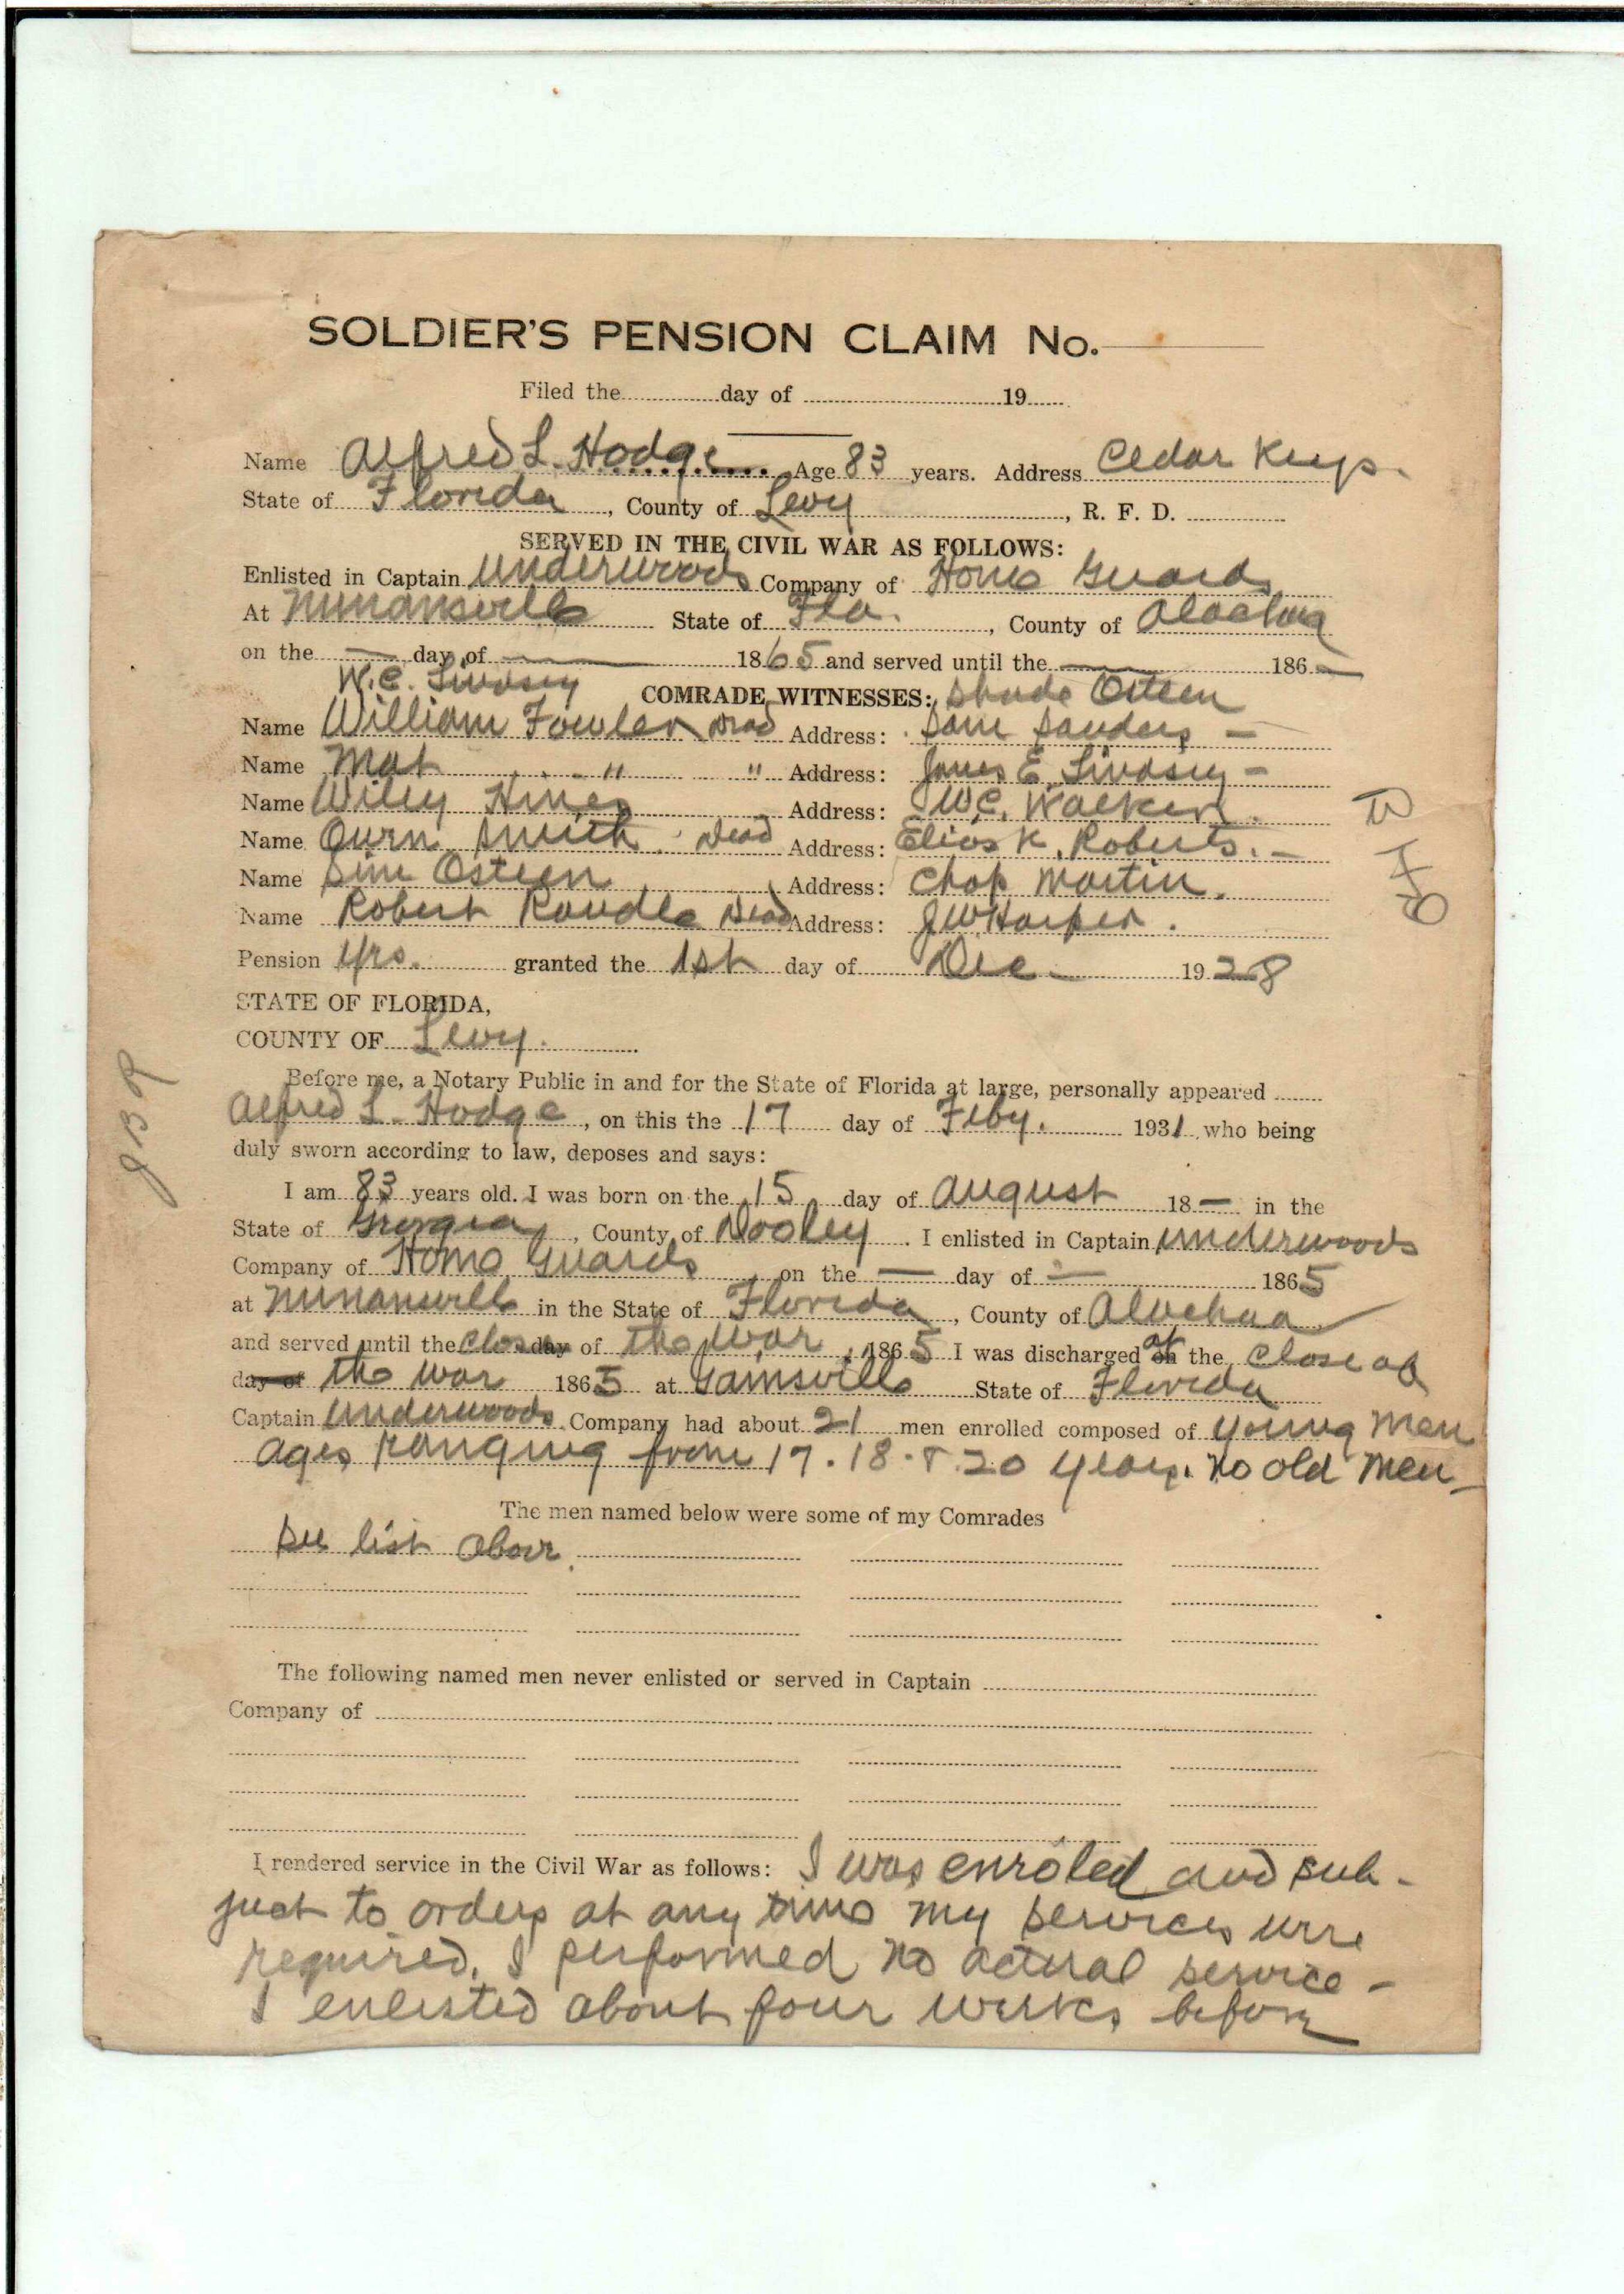 SOLDIER'S PENSION CLAIM No.
Filed the day of 19
Name Alfred L. Hodge Age 83 years. Address Cedar Keys.
State of Florida, County of Levy, R. F. D.
SERVED IN THE CIVIL WAR AS FOLLOWS:
Enlisted in Captain Underwoods Company of Home Guards
At Nunansville State of Fla., County of Alachua
on the — day of — 1865 and served until the — 186—
W.C. Lindsey COMRADE WITNESSES: Shade Osteen
Name William Fowler Dead Address: Sam Sanders —
Name Mat " " Address: James E. Lindsey —
Name Wiley Hines Address: W.C. Walker.
Name Ourn Smith. Dead Address: Elias K. Roberts. —
Name Sim Osteen Address: Chap Martin.
Name Robert Roudle Dead Address: J W Harper.
Pension Yes. granted the 1st day of Dec 1928
STATE OF FLORIDA,
COUNTY OF Levy.
Before me, a Notary Public in and for the State of Florida at large, personally appeared
Alfred L. Hodge, on this the 17 day of Feby. 1931 who being
duly sworn according to law, deposes and says:
I am 83 years old. I was born on the 15 day of August 18— in the
State of Georgia, County of Dooley. I enlisted in Captain Underwoods
Company of Home Guards on the — day of — 1865
at Nunansville in the State of Florida, County of Alachua
and served until the close day of the War, 1865 I was discharged at on the close of
day of the War 1865 at Gainsville State of Florida
Captain Underwoods Company had about 21 men enrolled composed of young men
ages ranging from 17. 18. & 20 years. No old men —
The men named below were some of my Comrades
See list above.
The following named men never enlisted or served in Captain
Company of
I rendered service in the Civil War as follows: I was enroled and sub-
ject to orders at any time my services were
required. I performed no actual service —
I enlisted about four weeks before